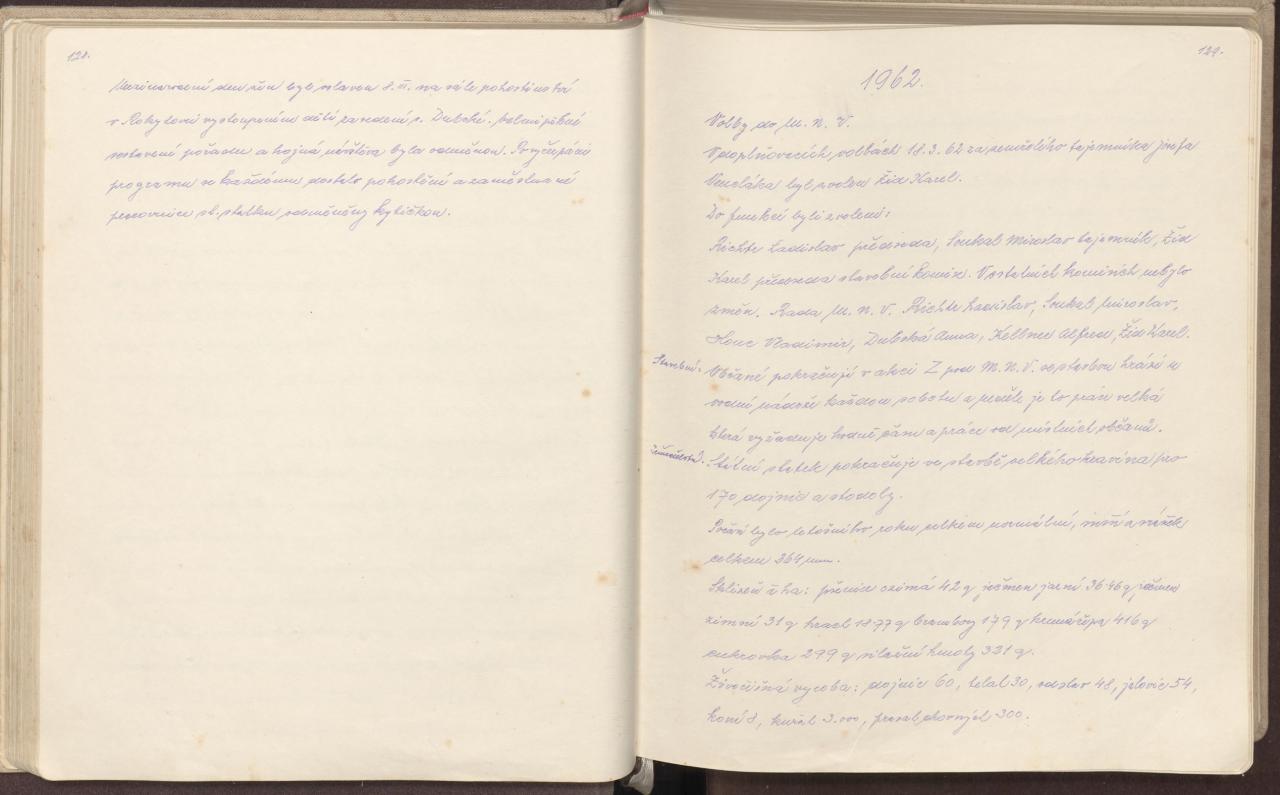 128.
Mezinárodní den žen byl oslaven 8. III. na sále pohostinství
v Rokytové vystoupením dětí za vedení s. Dubské. Velmi pěkné
sestavení pořadu a hojná návštěva byla odměnou. Po vyčerpání
programu se každému dostalo pohoštění a zaměstnané
pracovnice st. statku odměněny kytičkou.
129.
1962.
Volby do M. N. V.
V doplňovacích volbách 18. 3. 62 za zemřelého tajemníka Josefa
byl zvolen Žid Karel.
Do funkcí byli zvoleni:
Richte Ladislav předseda, Soukal Miroslav tajemník, Žid
Karel předseda stavební komise. V ostatních komisích nebylo
změn. Rada M. N. V. Richte Ladislav, Soukal Miroslav,
Honc Vladimír, Dubská Anna, Kellner Alfred, Žid Karel.
Stavební:
Občané pokračují v akci Z pod M. N. V. ve stavbu hráze u
vodní nádrže každou sobotu a neděle je to práce velká
která vyžaduje hodně času a práce od místních občanů.
Zemědělství.
Státní statek pokračuje ve stavbě velkého kravína pro
170 dojnic a stodoly.
Počasí bylo letošního roku celkem normální, srážek
celkem 364 mm.
Sklizeň z ha: pšenice ozimá 42 q ječmen jarní 36.46 q ječmen
zimní 31 q hrách 18.77 q brambory 179 q krmná řepa 416 q
cukrovka 299 q silážní hmoty 321 q.
Živočišná výroba: dojnic 60, telat 30, odstav 48, jalovic 54,
koní 8, kuřat 3.000, prasat 300.